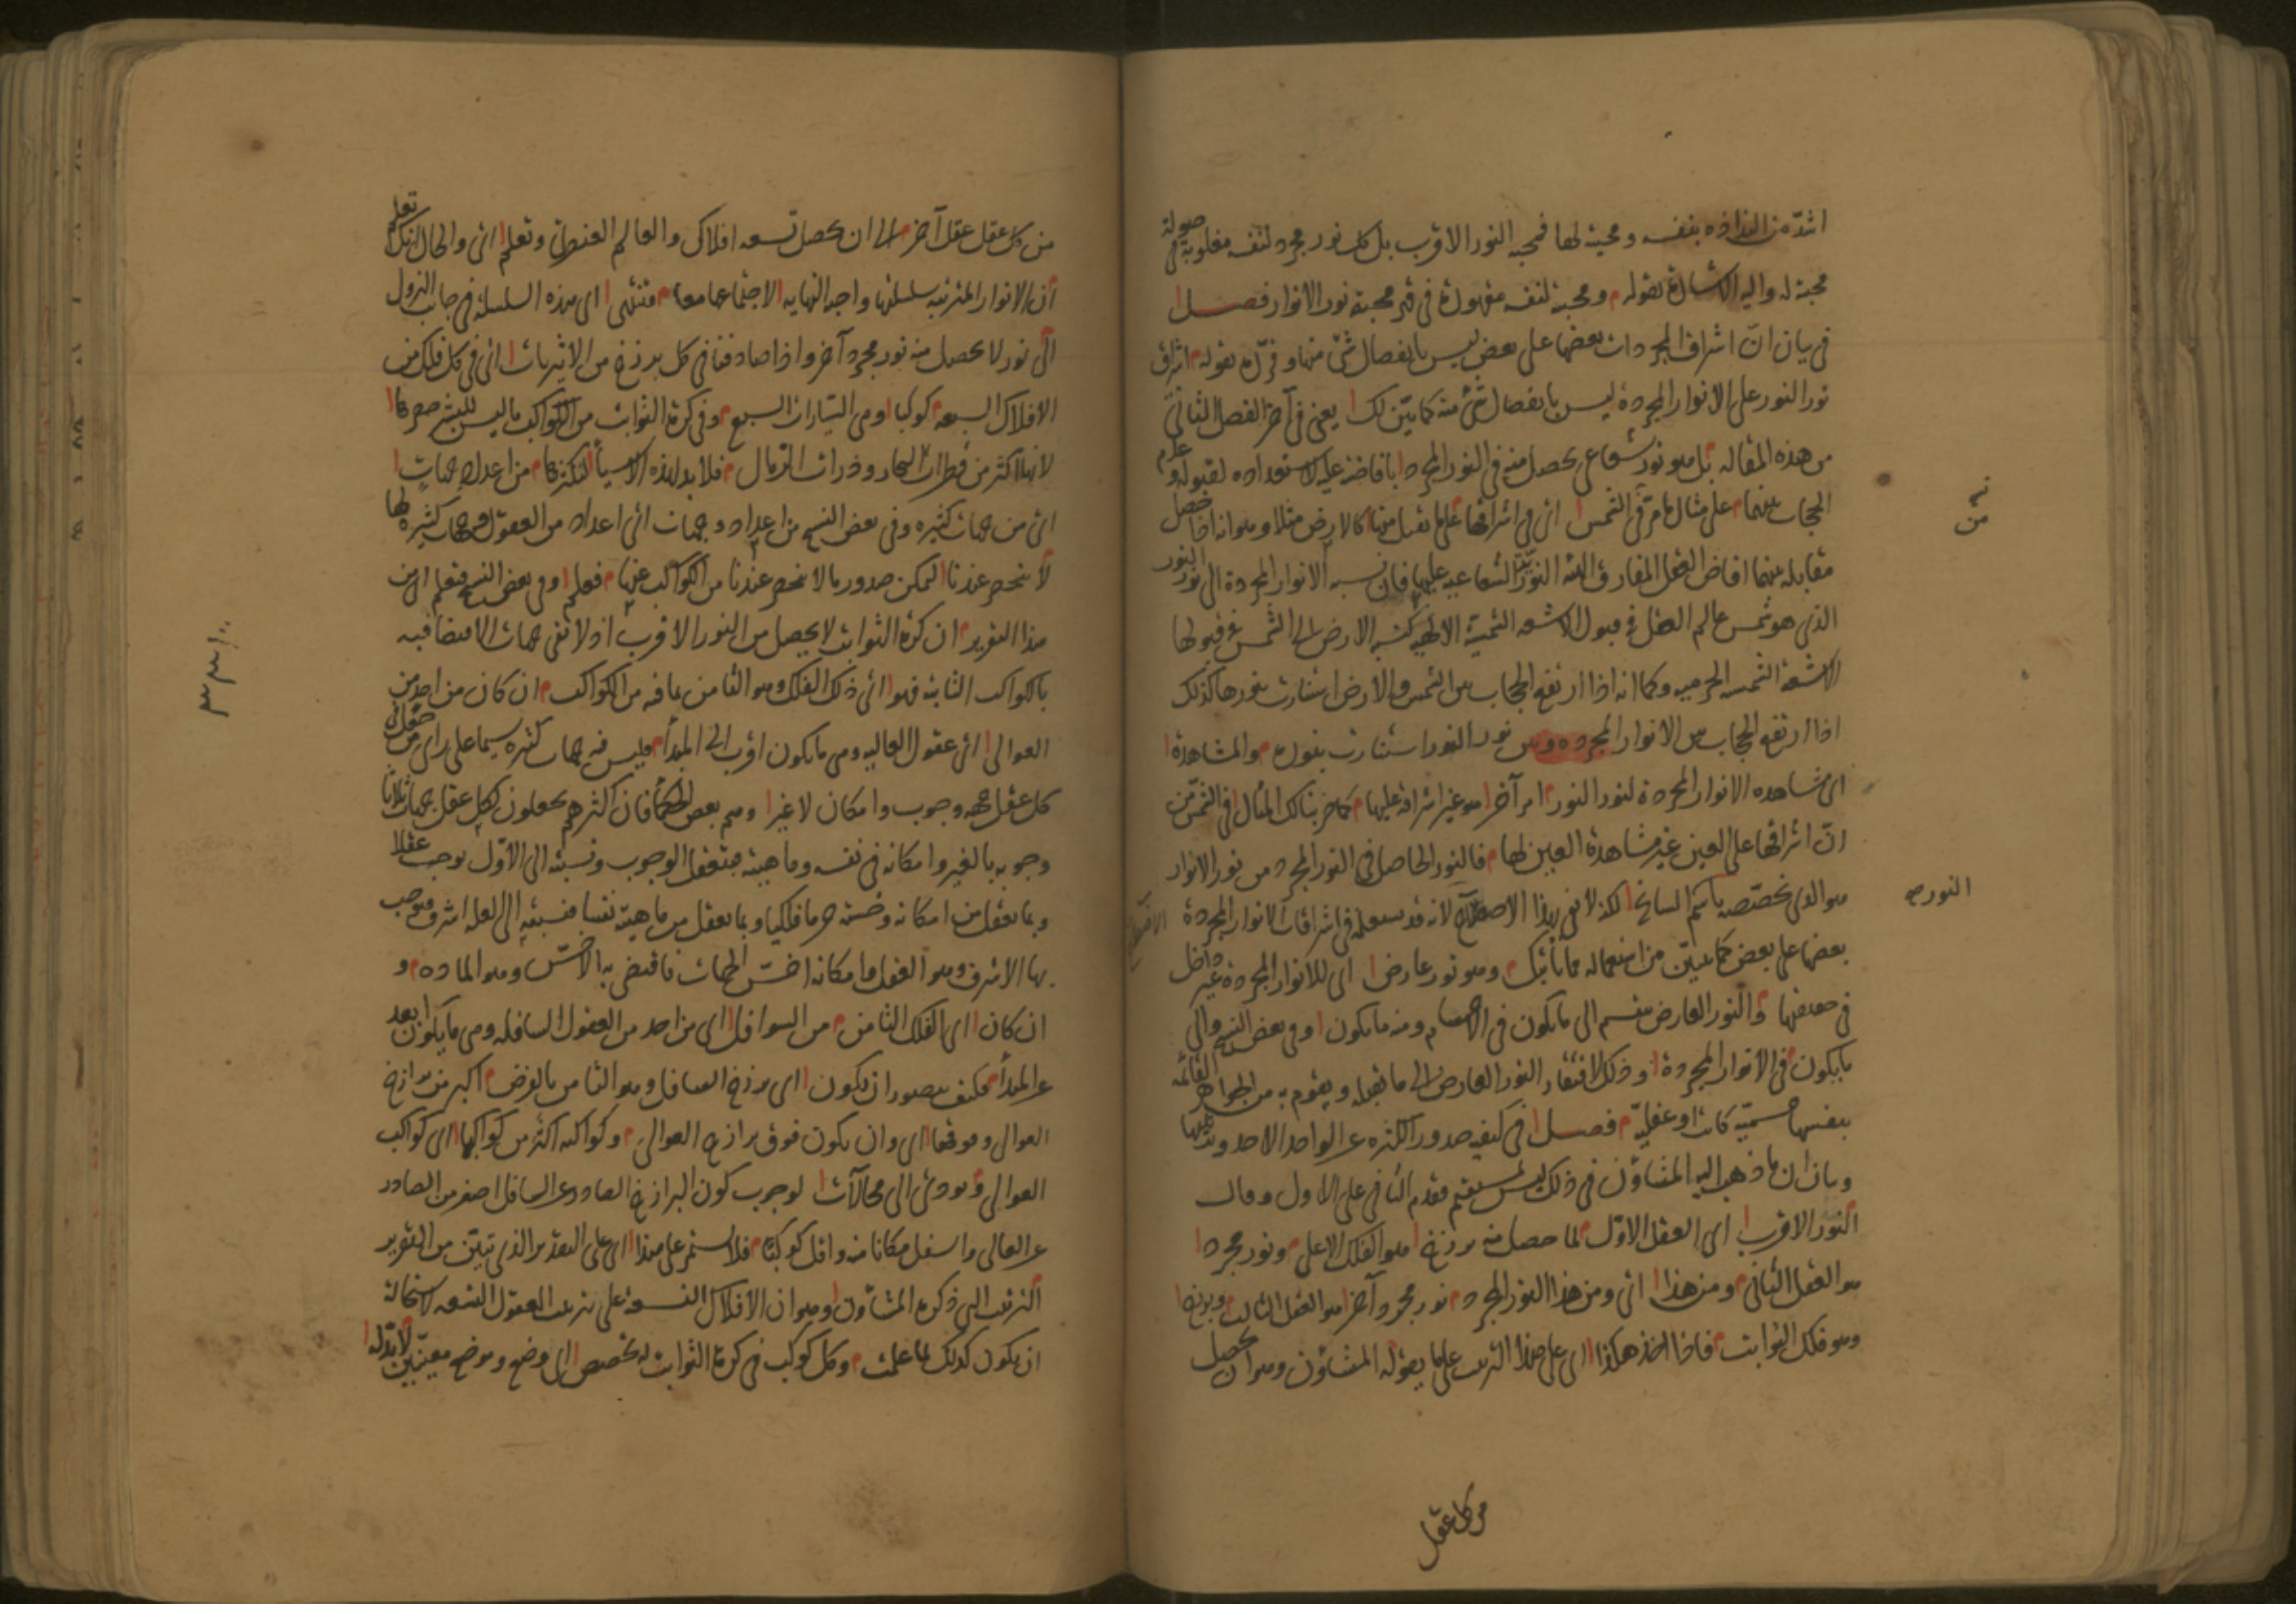 اشدّ من التذاذه بنفسه ومحبته لها فمحبه النور الاقرب بل كل نور مجرد لنفسه مغلوبة في
محبته له واليه الاشارة بقوله ومحبته لنفسه مقهورة في قهر محبة نور الانوار فصل
في بيان انّ اشراق المجردات بعضها على بعض ليس بانفصال شئ منها وقرّره بقوله اشراق
نور النور على الانوار المجردة ليس بانفصال شئ منه كما بيّن لك يعني في آخر الفصل الثاني
من هذه المقاله بل هو نور شعاعي يحصل منه في النور المجرد بافاضته عليه لاستعداده لقبوله وعدم
الحجاب بينهما على مثال ما مرّ في الشمس اي في اشراقها على ما يقبل منها كالارض مثلا وهو انه اذا حصل
مقابله بينهما افاض العقل المفارق الهيئة النوريّة الشعاعيه عليها فان نسبه الانوار المجردة الى نور النور
الذي هو شمس عالم العقل في قبول الاشعه الشمسيّة الالهيه كنسبه الارض الى الشمس في قبولها
الاشعه الشمسيه الجرميه وكما انه اذا ارتفع الحجاب بين الشمس والارض استنارت بنورها كذلك
اذا ارتفع الحجاب بين الانوار المجرده وبين نور النور استنارت بنوره والمشاهدة
اى مشاهده الانوار المجردة لنور النور امر آخر هو غير اشراقه عليها كما ضربنا لك المثال في الشمس من
انّ اشراقها على العين غير مشاهدة العين لها فالنور الحاصل في النور المجرد من نور الانوار
هو الذي نخصّصه باسم السانح لكنه لا يفي بهذا الاصطلاح لانه قد يستعمله في اشراقات الانوار المجردة
بعضها على بعض كما يتبيّن من استعماله مما يأتيك وهو نور عارض اى للانوار المجردة غير داخل
في حقيقتها والنور العارض ينقسم الى ما يكون في الاجسام ومنه ما يكون وفي بعض النسخ والى
ما يكون في الانوار المجردة وذلك لافتقار النور العارض الى ما يقبله ويقوم به من الجواهر القائمه
بنفسها جسميّة كانت او عقليّة فصل في كيفيه صدور الكثره عن الواحد الاحد وترتيبها
وبيان ان ما ذهب اليه المشاؤن في ذلك ليس بمستقيم فقدم الثاني على الاول وقال
النور الاقرب اى العقل الاوّل لما حصل منه برزخ هو الفلك الاعلى ونور مجرد
هو العقل الثاني ومن هذا اي ومن هذا النور المجرد نور مجرد آخر هو العقل الثالث وبرزخ
وهو فلك الثوابت فاذا اخذ هكذا اى على هذا الترتيب على ما يقوله المشاؤن وهو ان يحصل
النور صح
من كل عقل
من كل عقل عقل آخر الى ان يحصل تسعه افلاك والعالم العنصري وتعلم اى والحال انك تعلم
ان الانوار المترتبه سلسلتها واجبه النهايه لاجتماعها معا فتنتهى اى هذه السلسله في جانب النزول
الى نور لا يحصل منه نور مجرد آخر واذا صادفنا في كل برزخ من الاثيريات اى في كل فلك من
الافلاك السبعه كوكبا وهى السيّارات السبع وفي كرة الثوابت من الكواكب ما ليس للبشر حصرها
لانها اكثر من قطرات البحار وذرات الرمال فلا بد لهذه الاشياء لتكثرها من اعداد وجهات
اى من جهات كثيره وفي بعض النسخ من اعداد وجهات اى اعداد من العقول وجهات كثيره لها
لا تنحصر عندنا ليمكن صدور ما لا ينحصر عندنا من الكواكب عنها فعلم وفي بعض النسخ فتعلم اى من
هذا التقرير ان كرة الثوابت لا يحصل من النور الاقرب اذ لا تفي جهات الاقتضا فيه
بالكواكب الثابته فهو اى ذلك الفلك وهو الثامن بما فيه من الكواكب ان كان من احد من
العوالي اى عقول العاليه وهى ما يكون اقرب الى المبدأ فليس فيه جهات كثيره سيما على راى من جعل في
كل عقل جهه وجوب وامكان لا غير وهم بعض الحكماء فان اكثرهم يجعلون لكل عقل جهات ثلاثا
وجوبه بالغير وامكانه في نفسه وماهيته فتعقله الوجوب ونسبته الى الاوّل يوجب عقلا
وبما يعقل من امكانه وخسته جرما فلكيا وبما يعقل من ماهيته نفسا فنسبته الى العله اشرف فتوجب
بها الاشرف وهو العقل وامكانه اخسّ الجهات فاقتضى به الاخسّ وهو الماده و
ان كان اى الفلك الثامن من السوافل اى من احد من العقول السافله وهى ما يكون ابعد
عن المبدأ فكيف يتصور ان يكون اى برزخ السافل وهو الثامن بالفرض اكبر من برازخ
العوالي وفوقها اى وان يكون فوق برازخ العوالي وكواكبه اكثر من كواكبها اى كواكب
العوالي ويودي الى محالات لوجوب كون البرازخ الصادر عن السافل اصغر من الصادر
عن العالي واسفل مكانا منه واقل كوكبا فلا يستمر على هذا اى على التقدير الذي تبيّن من التقرير
الترتيب الذي ذكره المشاؤن وهو ان الافلاك التسعة على ترتيب العقول التسعه لاستحالة
ان يكون كذلك لما علمت وكل كوكب في كرة الثوابت له تخصص اى وضع وموضع معينين لا بدّ له